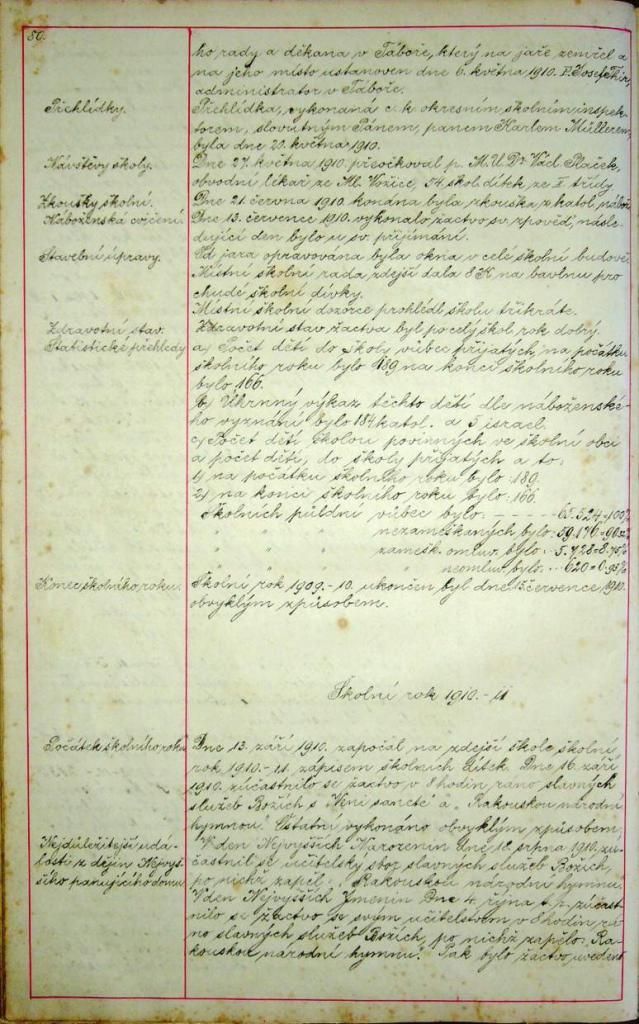 50.
ho rady a děkana v Táboře, který na jaře zemřel a
na jeho místo ustanoven dne 6. května 1910. P. Josef
administrator v Táboře.
Přehlídky. Přehlídka, vykonaná c. k. okresním školním inspek-
torem, slovutným Pánem, panem Karlem Müllerem
byla dne 20. května 1910.
Návštěvy školy. Dne 27. května 1910 přeočkoval p. M. U. Dr Václ. Ptáček,
obvodní lékař ze Ml. Vožice, 54 škol. dítek ze II. třídy.
Zkoušky školní. Dne 21. června 1910 konána byla zkouška z katol. nábož.
Náboženská cvičení. Dne 13. července 1910. vykonalo žactvo sv. zpověď, násle-
dující den bylo u sv. přijímání.
Stavební úpravy. Od jara opravována byla okna v celé školní budově.
Místní školní rada zdejší dala 8 K na bavlnu pro
chudé školní dívky.
Místní školní dozorce prohlédl školu třikráte.
Zdravotní stav. Zdravotní stav žactva byl po celý škol. rok dobrý.
Statistické přehledy a) Počet dětí do školy vůbec přijatých na počátku
školního roku bylo 189 na konci školního roku
bylo 166.
b) Úhrnný výkaz těchto dětí dle náboženské-
ho vyznání bylo 184 katol. a 5 israel.
c) Počet dětí školou povinných ve školní obci
a počet dětí, do školy přijatých a to:
1) na počátku školního roku bylo: 189.
2) na konci školního roku bylo: 166.
Školních půldní vůbec bylo: - - - - 65.524=100%
" " " nezameškaných bylo: 59.176=90.32%
" " " zamešk. omluv. bylo: 5.728=8.75%
" " " " neomluv. bylo: 620=0.95%
Konec školního roku. Školní rok 1909.-10. ukončen byl dne 15. července 1910
obvyklým způsobem.
Školní rok 1910.-11
Počátek školního roku Dne 13. září 1910. započal na zdejší škole školní
rok 1910.-11. zápisem školních dítek. Dne 16. září
1910. zúčastnilo se žactvo v 8 hodin ráno slavných
služeb Božích s "Veni sancte" a "Rakouskou národní
hymnou". Ostatní vykonáno obvyklým způsobem.
Nejdůležitější udá- V den Nejvyšších Narozenin dne 18. srpna 1910. zú-
losti z dějin Nejvyš- častnil se učitelský sbor slavných služeb Božích,
šího panujícího domu po nichž zapěl: "Rakouskou národní hymnu."
V den Nejvyšších Jmenin Dne 4. října t. r. zúčast-
nilo se žactvo se svým učitelstvem v 8 hodin rá-
no slavných služeb Božích, po nichž zapělo: "Ra-
kouskou národní hymnu." Pak bylo žactvo uvedeno